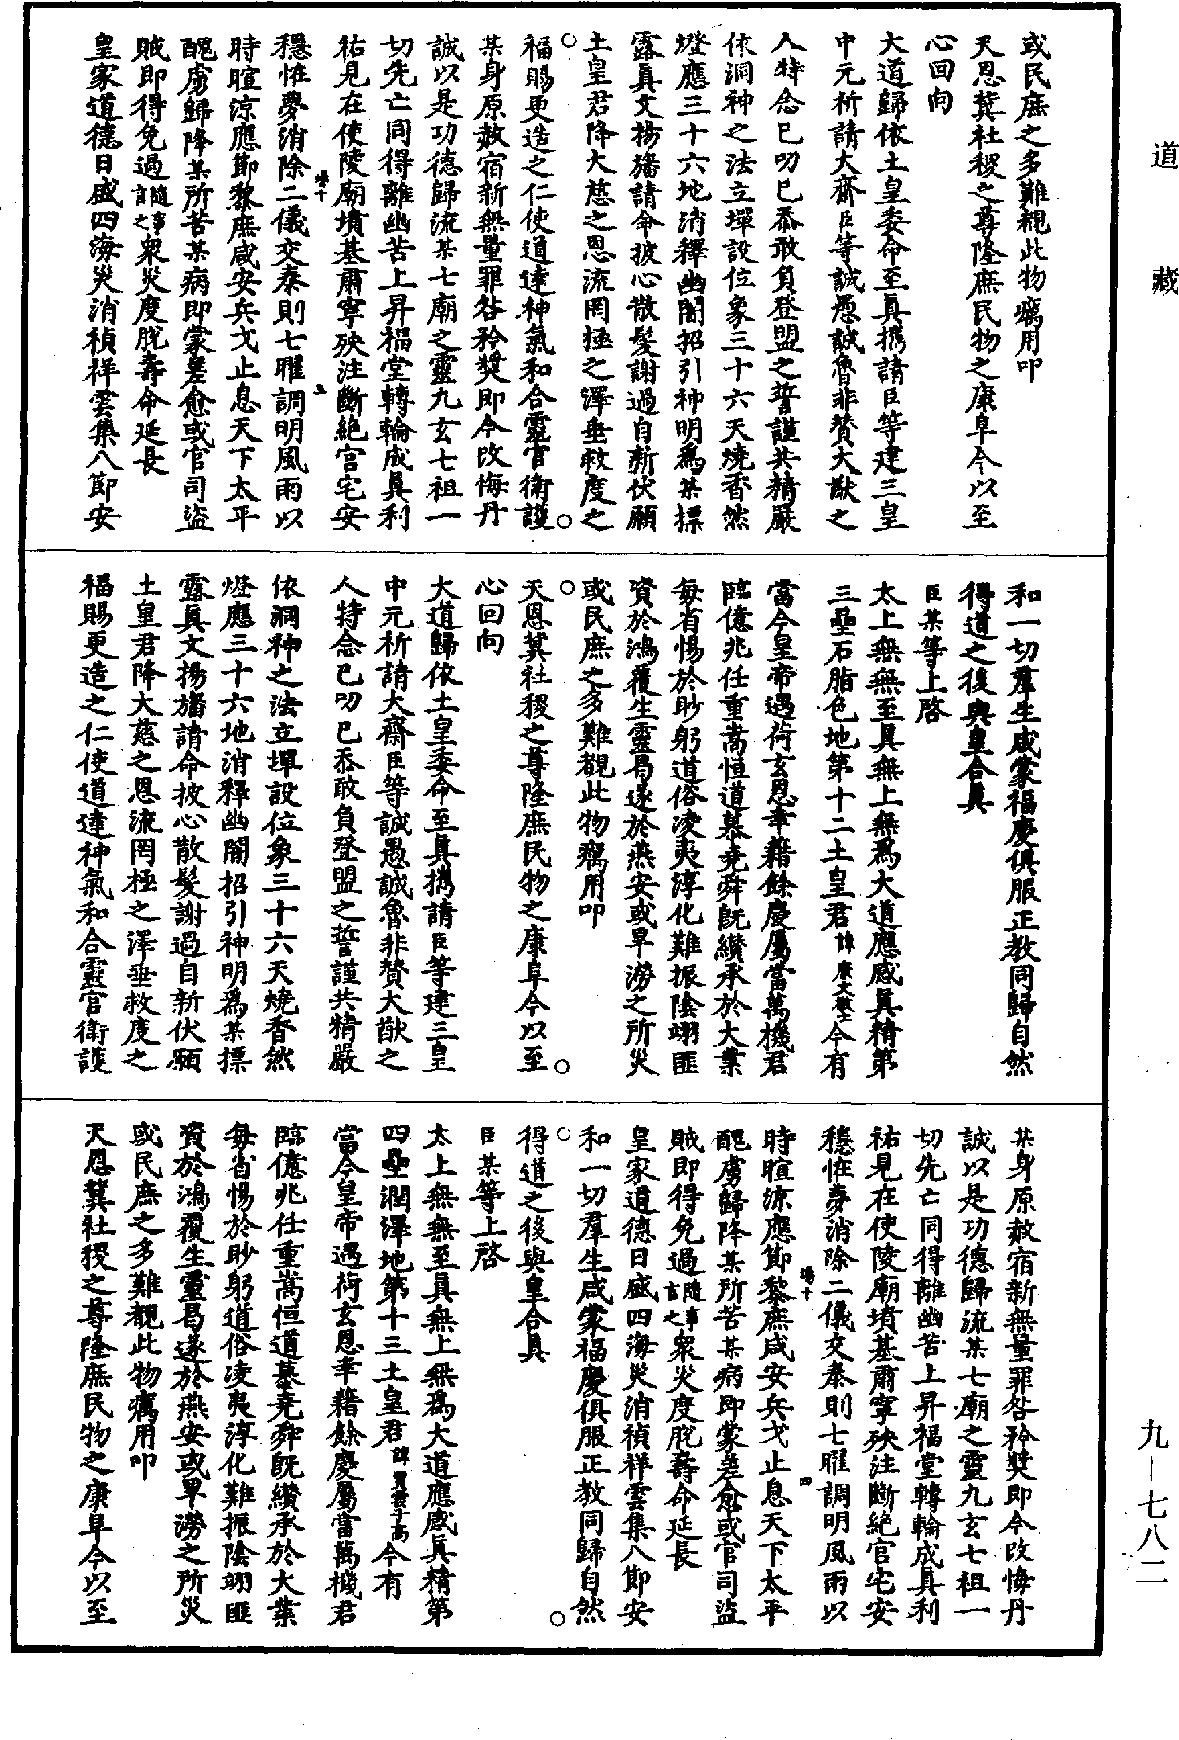 道藏
或民庶之多難覩此物癘用叩
天恩冀社稷之尊隆庶民物之康阜今以至
心回向
大道歸依土皇委命至真携請臣等建三皇
中元祈請大齋臣等誠愚誠魯非贊大猷之
人特念已叨已忝敢負登盟之誓謹共精嚴
依洞神之法立墠設位象三十六天燒香然
燈應三十六地消釋幽闇招引神明爲某摽
露真文揚旛請命披心散髮謝過自新伏願
土皇君降大慈之恩流罔極之澤垂救度之
福賜更造之仁使道達神氣和合靈官衛護
某身原赦宿新無量罪咎矜獎即今改悔丹
誠以是功德歸流某七廟之靈九玄七祖一
切先亡同得離幽苦上昇福堂轉輪成真利
祐見在使陵廟墳基肅寧殃注斷絕宮宅安
穩恠夢消除二儀交泰則七曜調明風雨以
時暄涼應節黎庶咸安兵戈止息天下太平
醜虜歸降某所苦某病即蒙差愈或官司盜
賊即得免過隨事言之衆災度脫壽命延長
皇家道德日盛四海災消禎祥雲集八節安
和一切羣生咸蒙福慶俱服正教同歸自然
得道之後與皇合真
臣某等上啓
太上無無至真無上無爲大道應感真精第
三壘石脂色地第十二土皇君諱今有
當今皇帝遇荷玄恩幸藉餘慶屬當萬機君
臨億兆任重嵩恒道慕堯舜既纘承於大業
每省惕於眇躬道俗凌夷淳化難振陰翊匪
資於鴻覆生靈曷遂於燕安或旱澇之所災
或民庶之多難觀此物癘用叩
天恩冀社稷之尊隆庶民物之康阜今以至
心回向
大道歸依土皇委命至真携請臣等建三皇
中元祈請大齋臣等誠愚誠魯非贊大猷之
人特念已叨已忝敢負登盟之誓謹共精嚴
依洞神之法立墠設位象三十六天燒香然
燈應三十六地消釋幽闇招引神明爲某摽
露真文揚旛請命披心散髮謝過自新伏願
土皇君降大慈之恩流罔極之澤垂救度之
福賜更造之仁使道達神氣和合靈官衛護
某身原赦宿新無量罪咎矜獎即今改悔丹
誠以是功德歸流某七廟之靈九玄七祖一
切先亡同得離幽苦上昇福堂轉輪成真利
祐見在使陵廟墳基肅寧殃注斷絕宮宅安
穩恠夢消除二儀交泰則七曜調明風雨以
時暄涼應節黎庶咸安兵戈止息天下太平
醜虜歸降某所苦某病即蒙差愈或官司盜
賊即得免過隨事言之衆災度脫壽命延長
皇家道德日盛四海災消禎祥雲集八節安
和一切羣生咸蒙福慶俱服正教同歸自然
得道之後與皇合真
臣某等上啓
太上無無至真無上無爲大道應感真精第
四壘潤澤地第十三土皇君諱今有
當今皇帝遇荷玄恩幸藉餘慶屬當萬機君
臨億兆任重嵩恒道慕堯舜既纘承於大業
每省惕於眇躬道俗凌夷淳化難振陰翊匪
資於鴻覆生靈曷遂於燕安或旱澇之所災
或民庶之多難覩此物癘用叩
天恩冀社稷之尊隆庶民物之康阜今以至
九－七八二